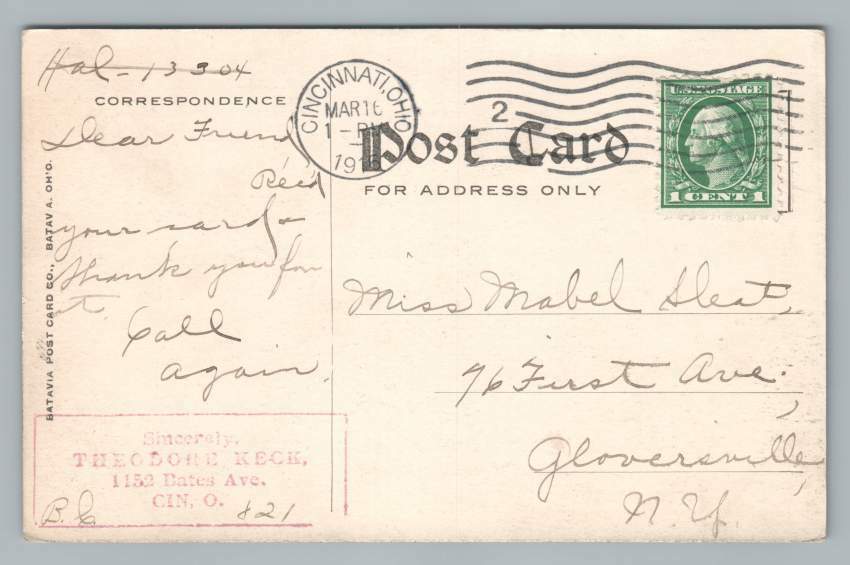 Hal - 13304
CORRESPONDENCE
Dear Friend
Rec'd
your card &
thank you for
it.
Call
again.
BATAVIA POST CARD CO., BATAVIA, OHIO.
Sincerely,
THEODORE KECK,
1152 Bates Ave.
CIN, O.
B.C. 821
CINCINNATI, OHIO
MAR 16
1 - PM
191
2
Post Card
FOR ADDRESS ONLY
U.S. POSTAGE
1 CENT 1
Miss Mabel Sleat,
76 First Ave.,
Gloversville,
N.Y.